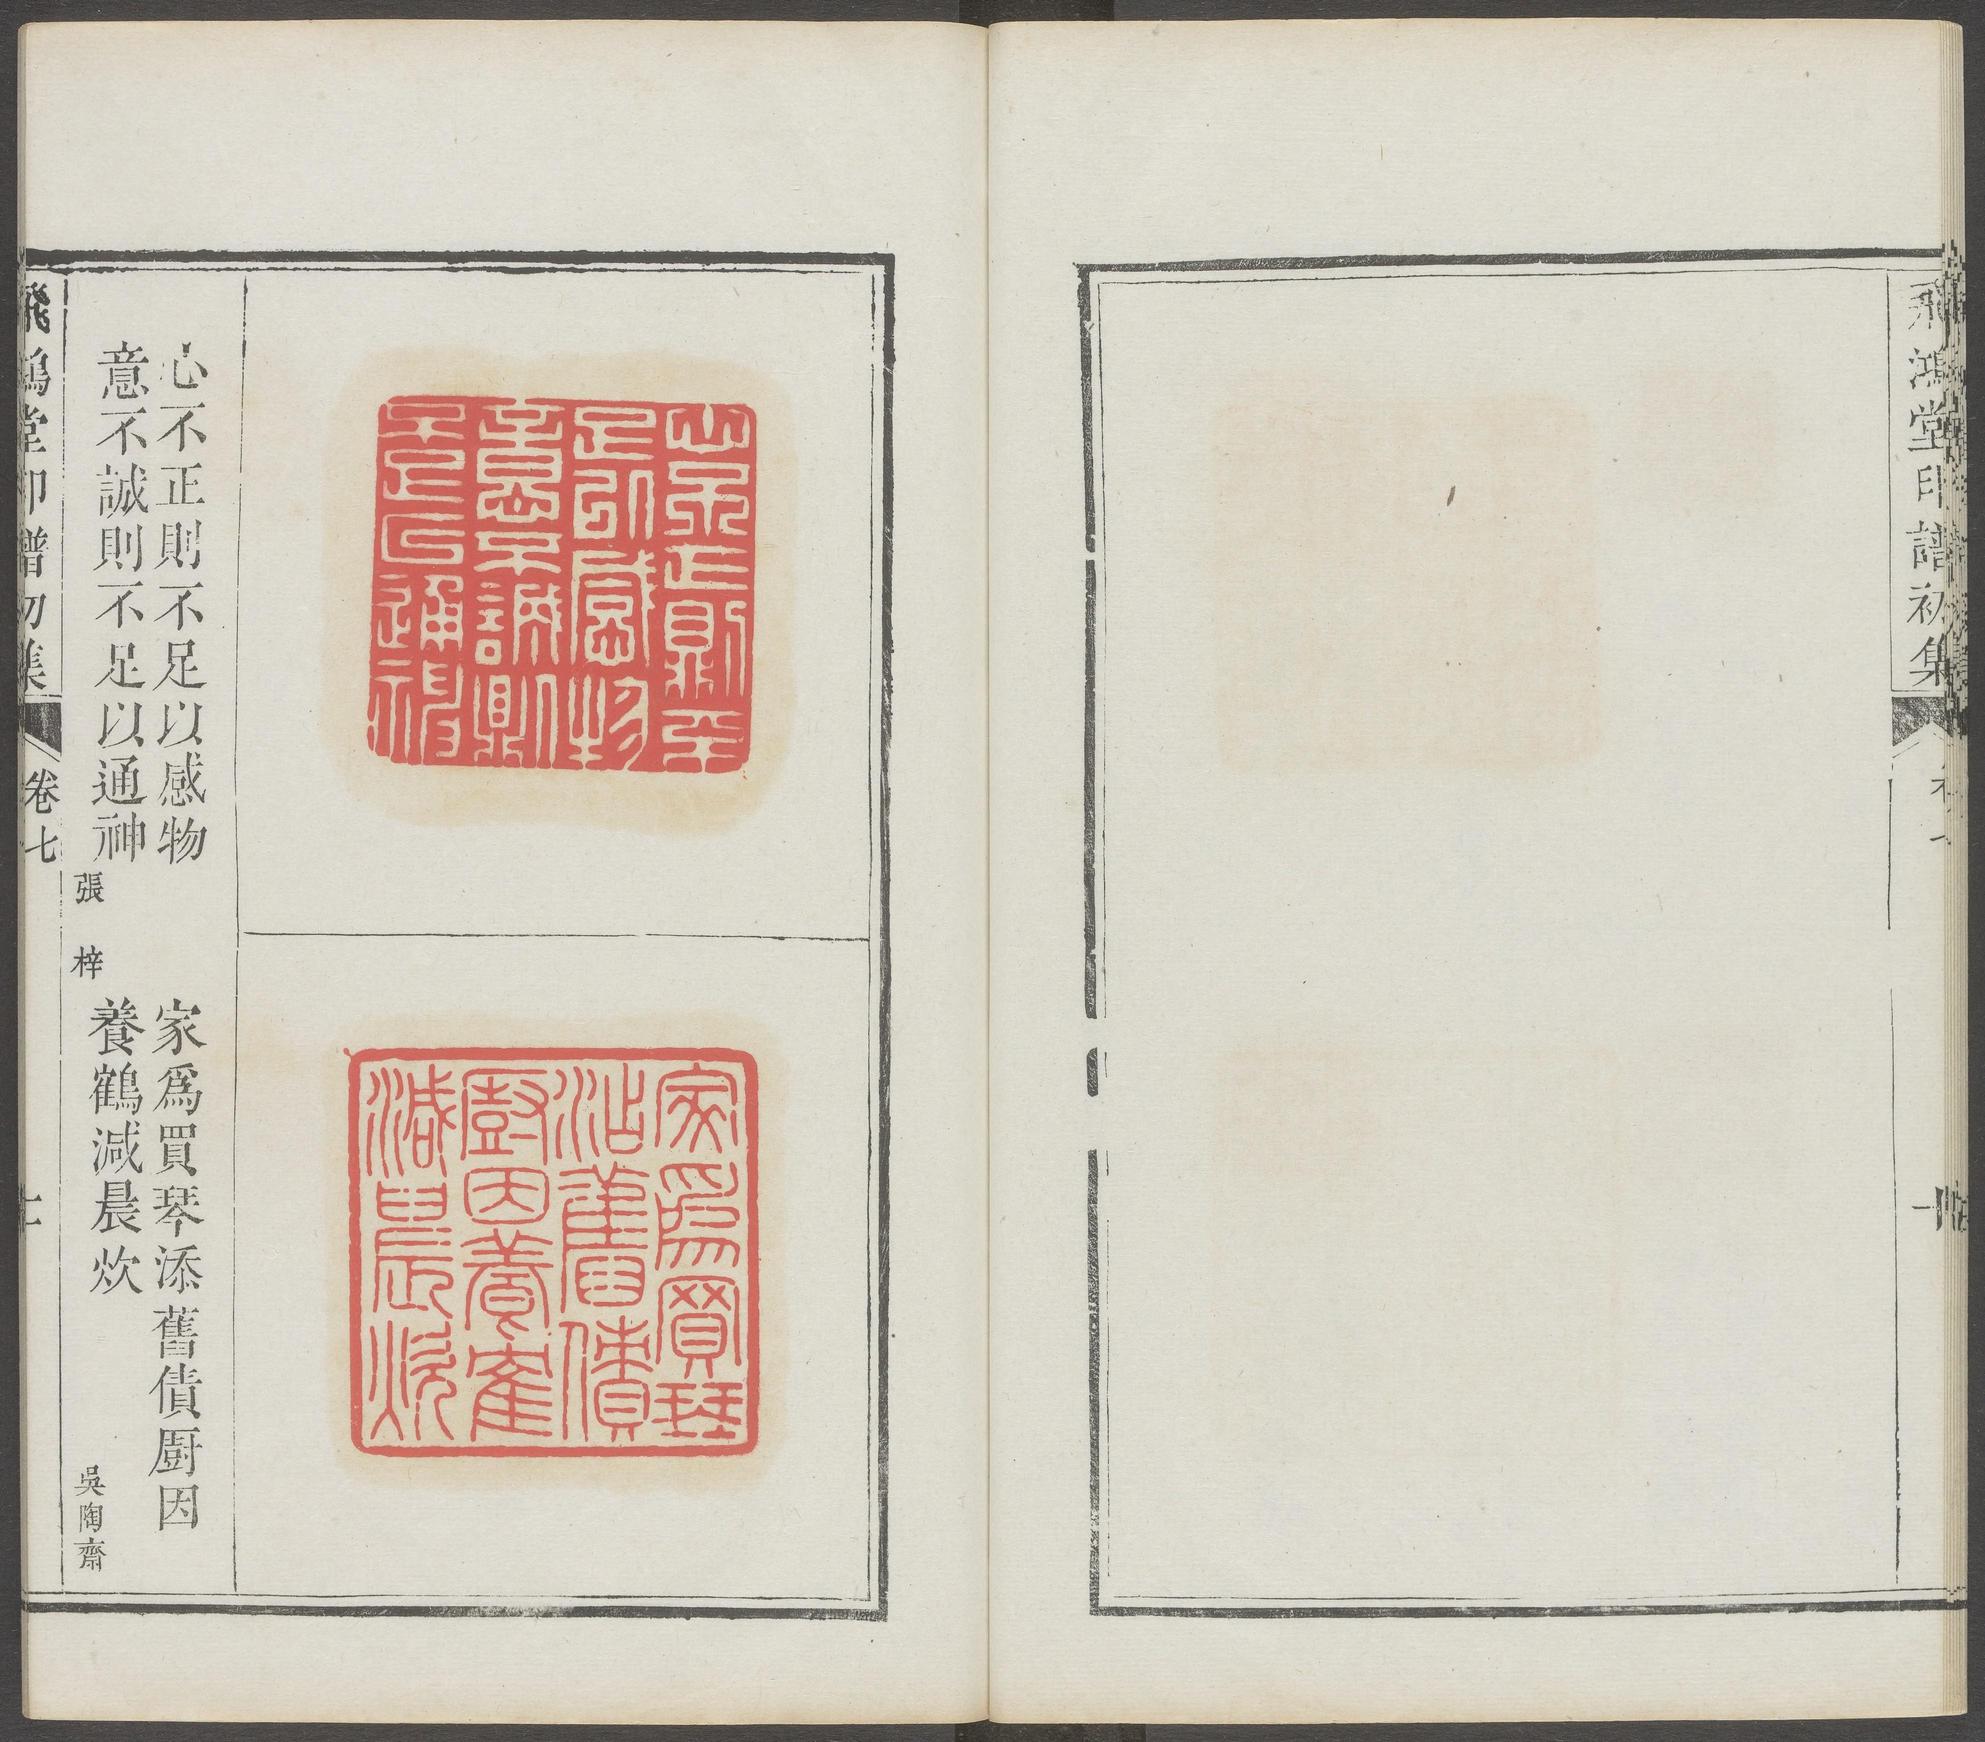 飛鴻堂印譜初集
心不正則不足以感物
意不誠則不足以通神
張梓
家爲買琴添舊債厨因
養鶴減晨炊
吳陶齋
飛鴻堂印譜初集
卷七